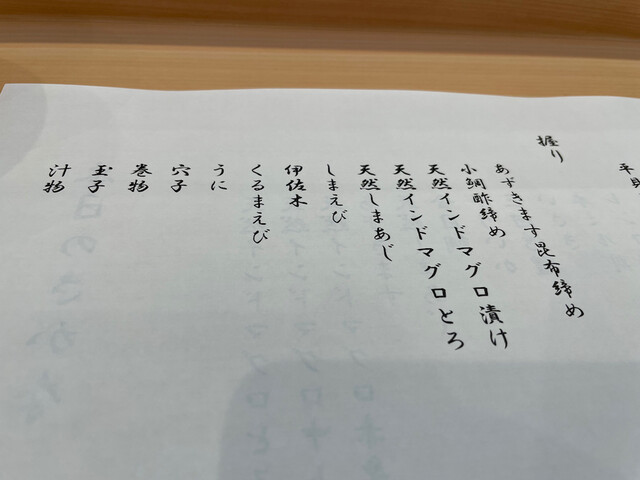 平
握り
あずきます昆布締め
小鯛酢締め
天然インドマグロ漬け
天然インドマグロとろ
天然しまあじ
しまえび
伊佐木
くるまえび
うに
穴子
巻物
玉子
汁物